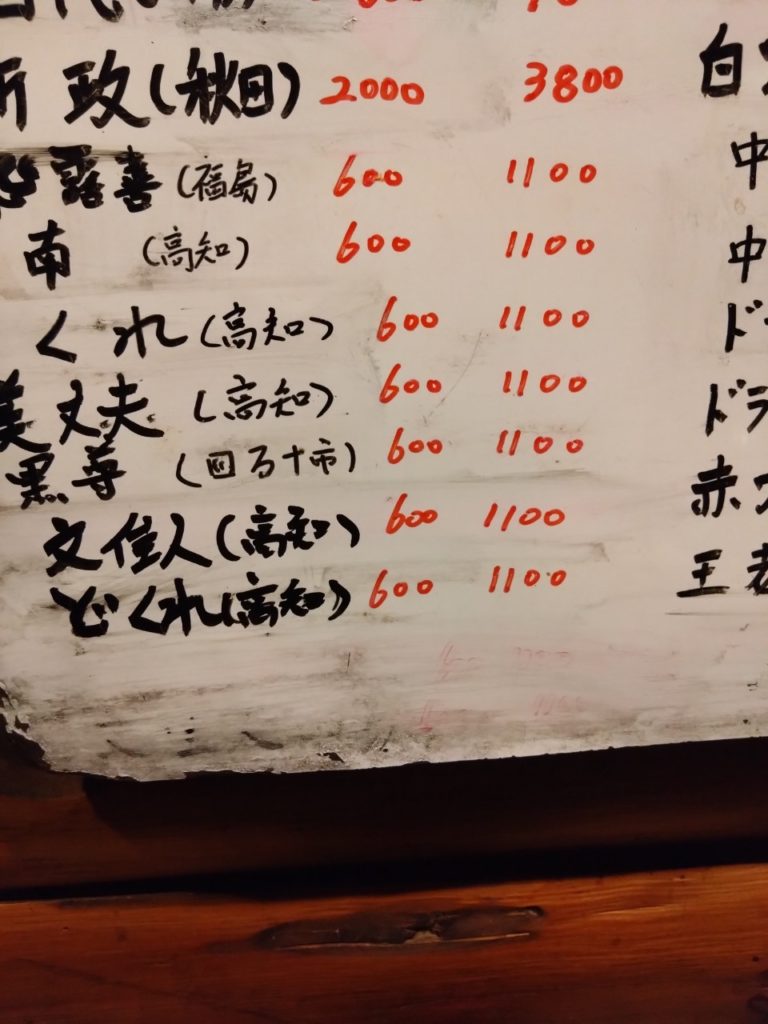 新政(秋田) 2000 3800
露喜(福島) 600 1100
南 (高知) 600 1100
くれ(高知) 600 1100
美丈夫 (高知) 600 1100
黒尊 (四万十市) 600 1100
文佳人(高知) 600 1100
どくれ(高知) 600 1100
白
中
中
ド
ドラ
赤
王者